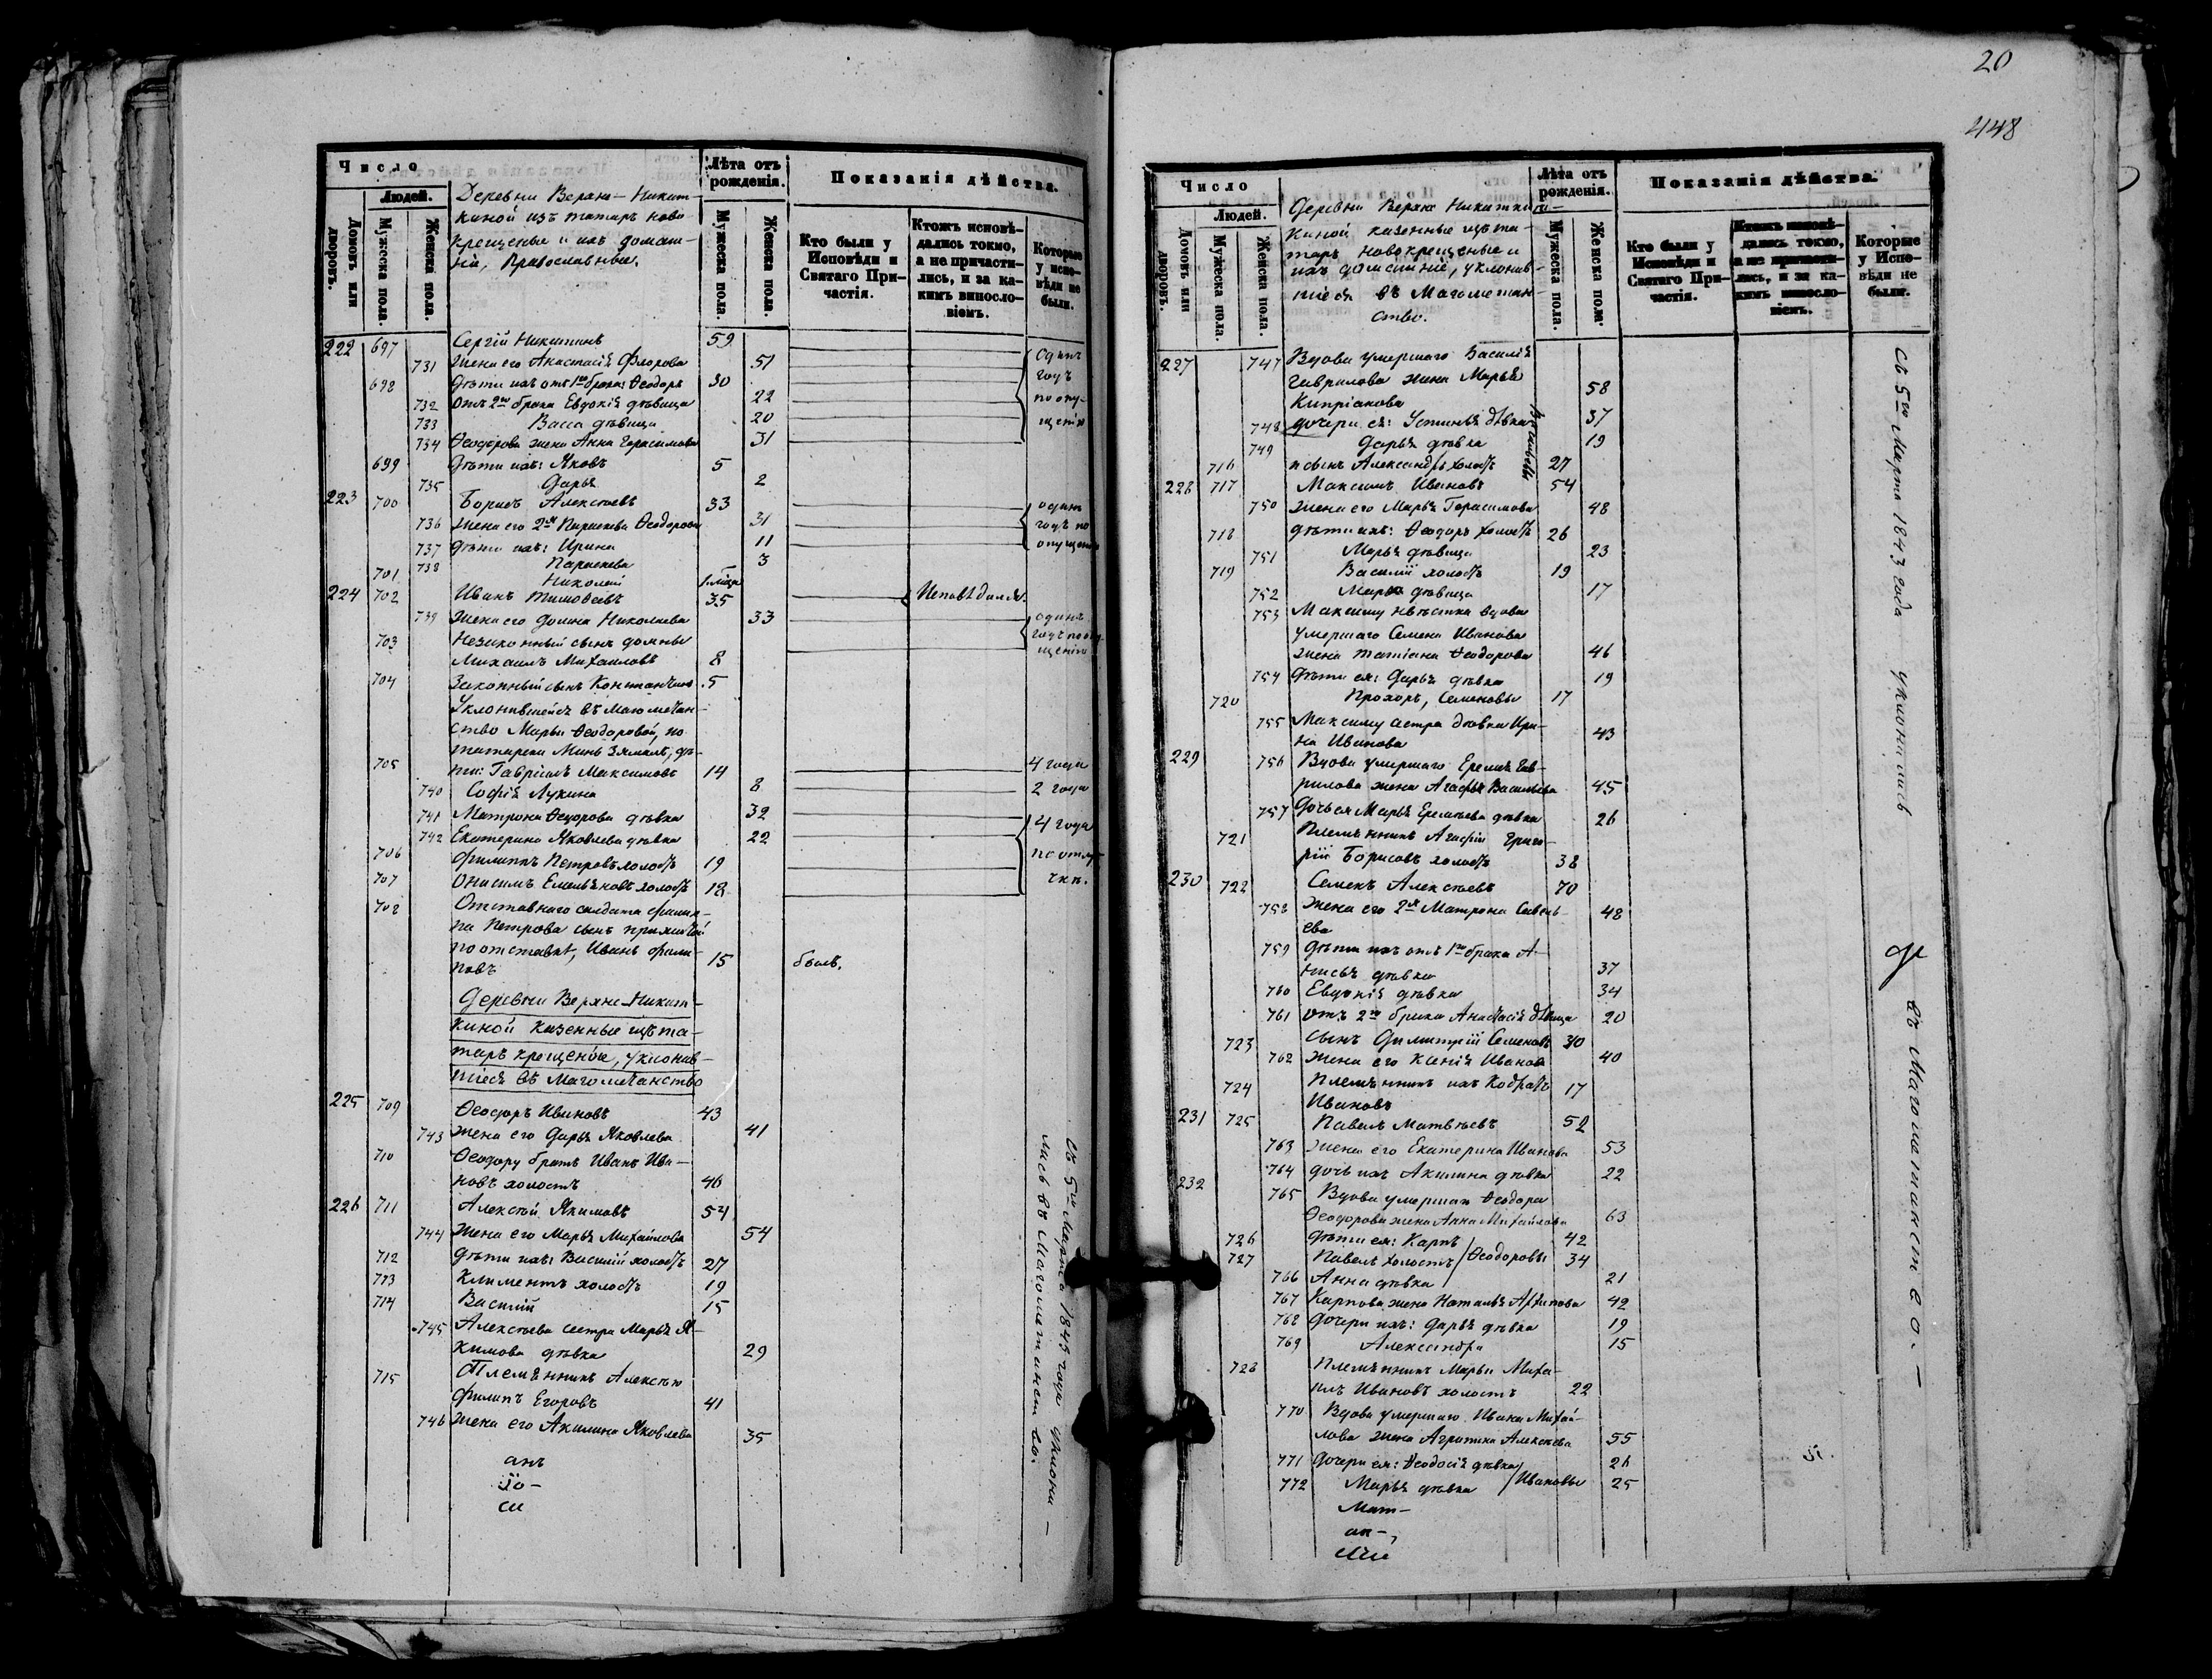 Число
Людей.
Домовъ или дворовъ.
Мужеска пола.
Женска пола.
Деревни Верхне-Никит-
киной изъ татаръ ново
крещеные и ихъ домаш-
ніе, Православные.
Лѣта отъ рожденія.
Мужеска пола.
Женска пола.
Показанія дѣйства.
Кто были у Исповѣди и Святаго При-частія.
Ктожъ исповѣ-дались токмо, а не причасти-лись, и за ка-кимъ виносло-віемъ.
Которые у испо-вѣди не были.
222 697 Сергій Никитинъ 59
731 Жена его Анастасія Флорова 51 одинъ
698 Дѣти ихъ отъ 1го брака: Ѳеодоръ 30 годъ
732 Отъ 2го брака Евдокія дѣвица 22 по опу-
733 Васса дѣвица 20 щенію
734 Ѳеодорова жена Анна Герасимова 31
699 Дѣти ихъ: Яковъ 5
735 Дарья 2
223 700 Борисъ Алексѣевъ 33 одинъ
736 Жена его 2я Параскева Ѳеодорова 31 годъ по
737 Дѣти ихъ: Ирина 11 опущенію
738 Параскева 3
701 Николай
224 702 Иванъ Тимоѳеевъ 35 Исповѣдался.
739 Жена его Домна Николаева 33 одинъ
703 Незаконный сынъ Домны годъ по опу-
Михаилъ Михаиловъ 8 щенію
704 Законный сынъ Константинъ 5
Уклонившейся въ Магометан-
ство Марьи Ѳеодоровой, по
татарски Минь Зямалъ, дѣ-
705 ти: Гавріилъ Максимовъ 14 4 года
740 Софія Лукина 8 2 года
741 Матрона Ѳедорова дѣвка 32 4 года
742 Екатерина Яковлева дѣвка 22
706 Филиппъ Петровъ холостъ 19 по отлу-
707 Онисимъ Емельяновъ холостъ 18 чкѣ.
708 Отставнаго солдата Филип-
па Петрова сынъ прижитый
по отставкѣ, Иванъ Филип-
повъ 15 былъ.
Деревни Верхне-Никит-
киной казенные изъ та-
таръ крещеные, уклонив-
шіеся въ Магометанство
225 709 Ѳеодоръ Ивановъ 43
743 Жена его Дарья Яковлева 41
710 Ѳеодору братъ Иванъ Ива-
новъ холостъ 40
226 711 Алексѣй Якимовъ 54
744 Жена его Марья Михайлова 54
712 Дѣти ихъ: Василій холостъ 27
713 Климентъ холостъ 19
714 Василій 15
745 Алексѣева сестра Марья Я-
кимова дѣвка 29
715 Племянникъ Алексѣю
Филипъ Егоровъ 41
746 Жена его Акилина Яковлева 35
Съ 5го Марта 1843 года уклони-
лись въ Магометанство.
20
448
Число
Людей.
Домовъ или дворовъ.
Мужеска пола.
Женска пола.
Деревни Верхне Никит
киной казенные изъ та-
таръ новокрещеные и
ихъ домашніе, уклонив-
шіеся въ Магометан-
ство.
Лѣта отъ рожденія.
Мужеска пола.
Женска пола.
Показанія дѣйства.
Кто были у Исповѣди и Святаго При-частія.
Ктожъ исповѣ-дались токмо, а не причасти-лись, и за ка-кимъ виносло-віемъ.
Которые у Испо-вѣди не были.
227 747 Вдова умершаго Василія
Гаврилова жена Марья
Кипріанова 58
748 дочери ея: Устинья дѣвка 37
749 Дарья дѣвка 19
716 и сынъ Александръ холостъ 27
Васильевы
228 717 Максимъ Ивановъ 54
750 Жена его Марья Герасимова 48
718 Дѣти ихъ: Ѳеодоръ холостъ 26
751 Марья дѣвица 23
719 Василій холостъ 19
752 Марья дѣвица 17
753 Максиму невѣстка вдова
умершаго Семена Иванова
жена Татіана Ѳеодорова 46
754 Дѣти ея: Дарья дѣвка 19
720 Прохоръ, Семеновы 17
755 Максиму сестра дѣвка Ири-
на Иванова 43
229 756 Вдова умершаго Еремея Гав-
рилова жена Агафья Васильева 45
757 Дочь ея Марья Еремѣева дѣвка 26
721 Племянникъ Агафіи Григо-
рій Борисовъ холостъ 38
230 722 Семенъ Алексѣевъ 70
758 Жена его 2я Матрона Савель-
ева 48
759 Дѣти ихъ отъ 1го брака А-
нисья дѣвка 37
760 Евдокія дѣвка 34
761 отъ 2го брака Анастасія дѣвица 20
723 сынъ Димитрій Семеновъ 30
762 Жена его Ксенія Иванова 40
724 Племянникъ ихъ Кодратъ 17
Ивановъ
231 725 Павелъ Матвѣевъ 52
763 Жена его Екатерина Иванова 53
764 дочь ихъ Акилина дѣвка 22
232 765 Вдова умершаго Ѳеодора
Ѳеодорова жена Анна Михайлова 63
726 Дѣти ея: Карпъ 42
727 Павелъ холостъ Ѳеодоровы 34
766 Анна дѣвка 21
767 Карпова жена Наталья Архипова 42
768 Дочери ихъ: Дарья дѣвка 19
769 Александра 15
728 Племянникъ Марьи Миха-
илъ Ивановъ холостъ 22
770 Вдова умершаго Ивана Михай-
лова жена Агрипина Алексѣева 55
771 Дочери ея: Ѳеодосія дѣвка 26
772 Марья дѣвка Ивановы 25
Съ 5го Марта 1843 года уклонились
въ Магометанство.